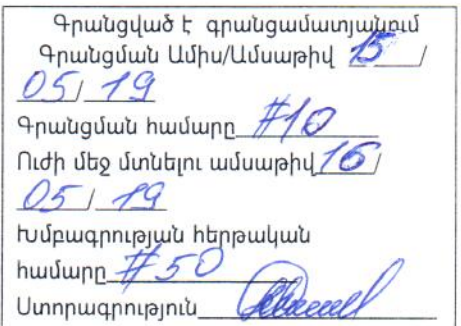 Գրանցված է գրանցամատյանում
Գրանցման Ամիս/Ամսաթիվ 15 /
05 / 19
Գրանցման համարը #10
Ուժի մեջ մտնելու ամսաթիվ 16 /
05 / 19
Խմբագրության հերթական
համարը #50
Ստորագրություն